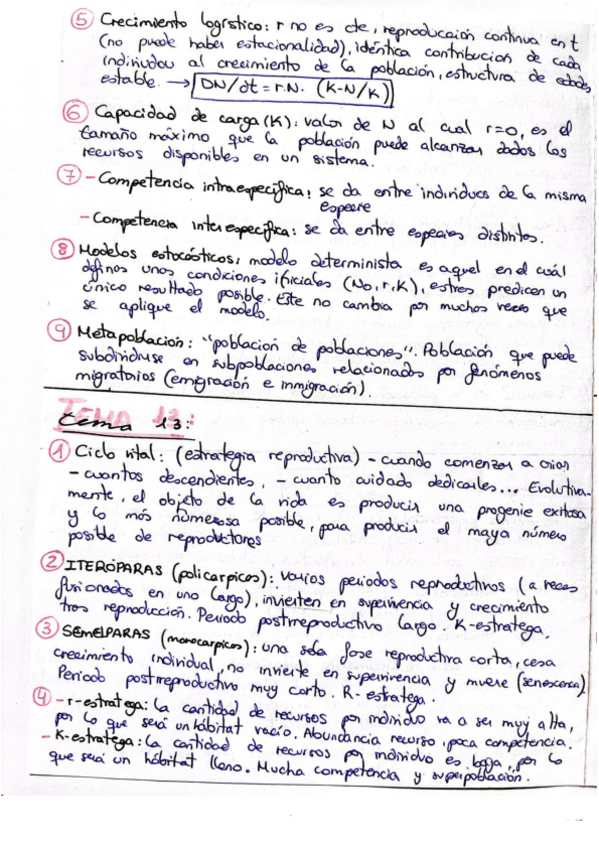 ⑤ Crecimiento logístico: r no es cte, reproducción continua en t
(no puede haber estacionalidad), idéntica contribución de cada
individuo al crecimiento de la población, estructura de edades
estable. → DN/dt = r.N. (K-N/K)
⑥ Capacidad de carga (K): valor de N al cual r=0, es el
tamaño máximo que la población puede alcanzar dados los
recursos disponibles en un sistema.
⑦ - Competencia intraespecífica: se da entre individuos de la misma
especie
- Competencia interespecífica: se da entre especies distintas.
⑧ Modelos estocásticos, modelo determinista es aquel en el cuál
defines unos condiciones iniciales (No, r, K), estres predicen un
único resultado posible. Este no cambia por muchas veces que
se aplique el modelo.
⑨ Metapoblación: "población de poblaciones". Población que puede
subdividirse en subpoblaciones relacionados por fenómenos
migratorios (emigración e inmigración).
TEMA 13:
tema 13:
① Ciclo vital: (estrategia reproductiva) - cuando comenzar a criar
- cuantos descendientes, - cuanto cuidado dedicarles... Evolutiva-
mente, el objeto de la vida es producir una progenie exitosa
y lo más númerosa posible, para producir el mayor número
posible de reproductores
② ITERÓPARAS (policarpicos): varios periodos reproductivos (a veces
fusionados en uno largo), invierten en supervivencia y crecimiento
tras reproducción. Periodo postrreproductivo largo. K-estratega.
③ SEMELPARAS (monocarpicos): una sola fase reproductiva corta, cesa
crecimiento individual, no invierte en supervivencia y muere (senescencia)
Periodo postrreproductivo muy corto. R-estratega.
④ - r-estratega: la cantidad de recursos por individuo va a ser muy alta,
por lo que será un hábitat vacío. Abundancia recurso, poca competencia.
- K-estratega: la cantidad de recursos por individuo es baja, por lo
que será un hábitat lleno. Mucha competencia y superpoblación.